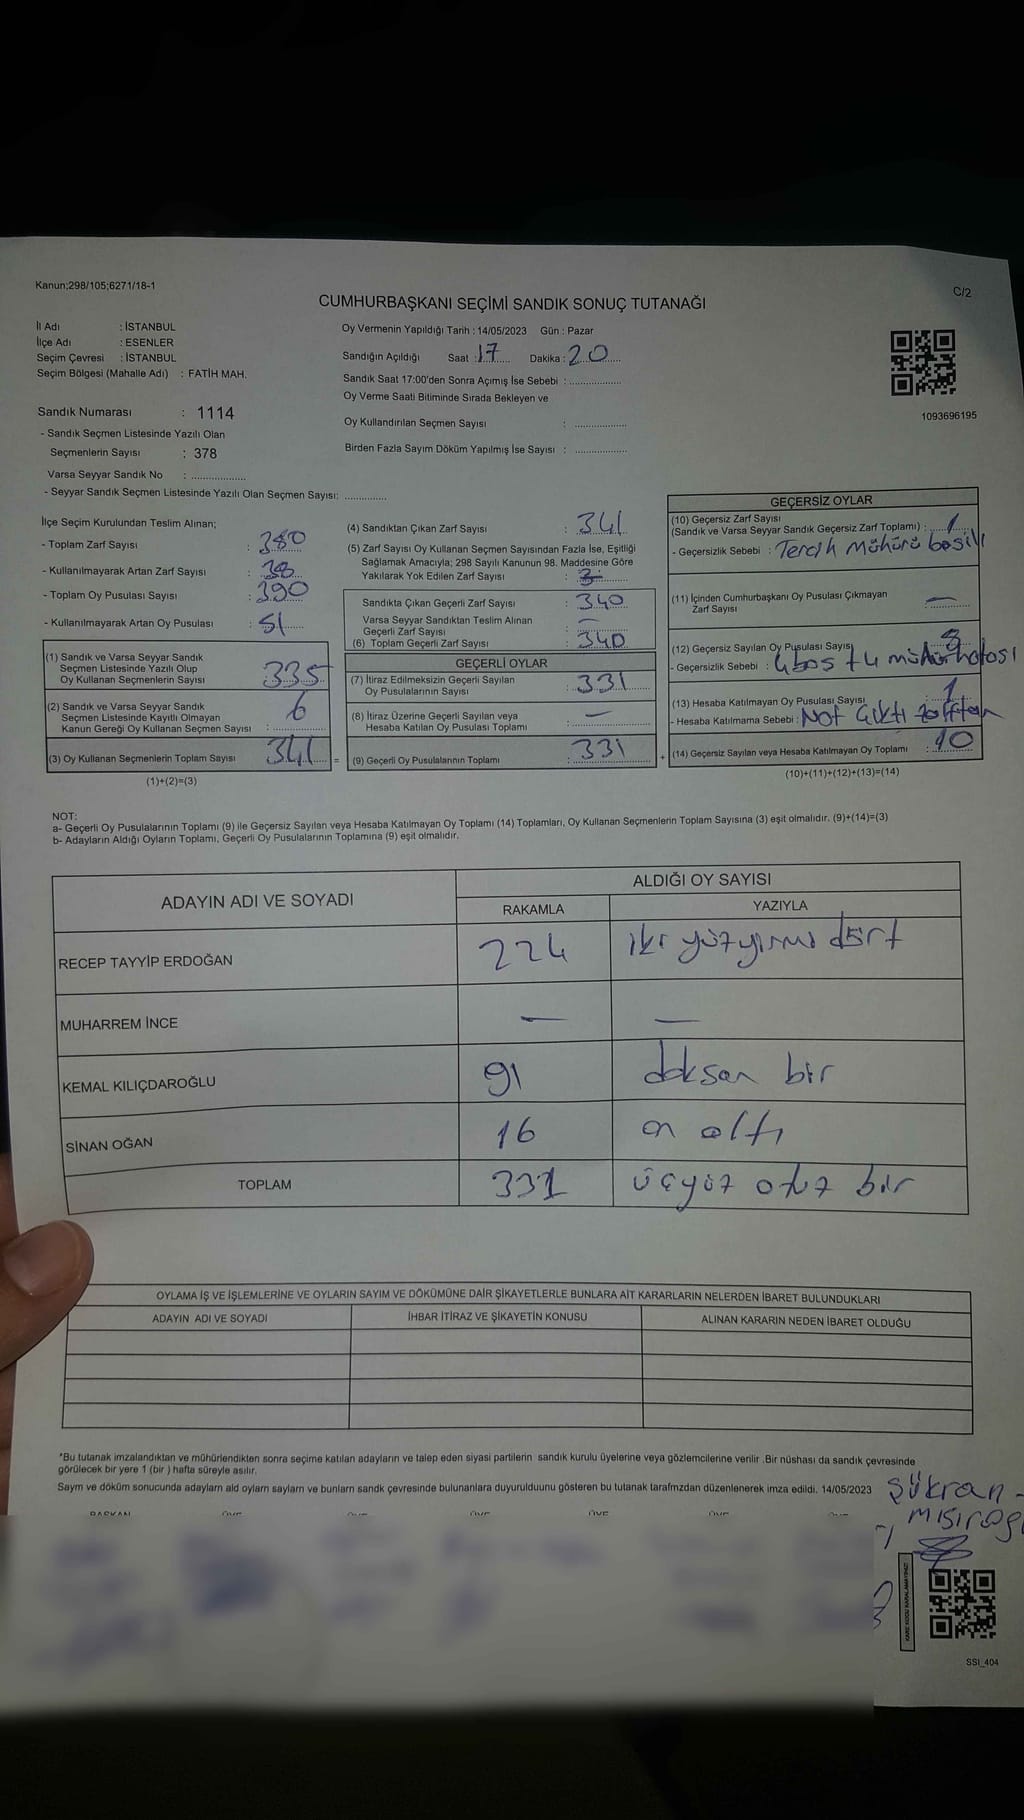 Kanun;298/105;6271/18-1
C/2
CUMHURBAŞKANI SEÇİMİ SANDIK SONUÇ TUTANAĞI
İl Adı : İSTANBUL
İlçe Adı : ESENLER
Seçim Çevresi : İSTANBUL
Seçim Bölgesi (Mahalle Adı) : FATİH MAH.
Sandık Numarası : 1114
- Sandık Seçmen Listesinde Yazılı Olan
Seçmenlerin Sayısı : 378
Varsa Seyyar Sandık No : ...................
- Seyyar Sandık Seçmen Listesinde Yazılı Olan Seçmen Sayısı: ..............
Oy Vermenin Yapıldığı Tarih : 14/05/2023 Gün : Pazar
Sandığın Açıldığı Saat : 17 Dakika : 20
Sandık Saat 17:00'den Sonra Açımış İse Sebebi : ...................
Oy Verme Saati Bitiminde Sırada Bekleyen ve
Oy Kullandırılan Seçmen Sayısı : ...................
Birden Fazla Sayım Döküm Yapılmış İse Sayısı : ...................
1093696195
İlçe Seçim Kurulundan Teslim Alınan;
- Toplam Zarf Sayısı : 380
- Kullanılmayarak Artan Zarf Sayısı : 38
- Toplam Oy Pusulası Sayısı : 390
- Kullanılmayarak Artan Oy Pusulası : 51
(1) Sandık ve Varsa Seyyar Sandık
Seçmen Listesinde Yazılı Olup
Oy Kullanan Seçmenlerin Sayısı : 335
(2) Sandık ve Varsa Seyyar Sandık
Seçmen Listesinde Kayıtlı Olmayan
Kanun Gereği Oy Kullanan Seçmen Sayısı : 6
(3) Oy Kullanan Seçmenlerin Toplam Sayısı : 341 =
(1)+(2)=(3)
(4) Sandıktan Çıkan Zarf Sayısı : 341
(5) Zarf Sayısı Oy Kullanan Seçmen Sayısından Fazla İse, Eşitliği
Sağlamak Amacıyla; 298 Sayılı Kanunun 98. Maddesine Göre
Yakılarak Yok Edilen Zarf Sayısı :
Sandıkta Çıkan Geçerli Zarf Sayısı : 340
Varsa Seyyar Sandıktan Teslim Alınan
Geçerli Zarf Sayısı : —
(6) Toplam Geçerli Zarf Sayısı : 340
GEÇERLİ OYLAR
(7) İtiraz Edilmeksizin Geçerli Sayılan
Oy Pusulalarının Sayısı : 331
(8) İtiraz Üzerine Geçerli Sayılan veya
Hesaba Katılan Oy Pusulası Toplamı : —
(9) Geçerli Oy Pusulalarının Toplamı : 331 +
GEÇERSİZ OYLAR
(10) Geçersiz Zarf Sayısı
(Sandık ve Varsa Seyyar Sandık Geçersiz Zarf Toplamı) : 1
- Geçersizlik Sebebi : Tercih mühürü basılı
(11) İçinden Cumhurbaşkanı Oy Pusulası Çıkmayan
Zarf Sayısı : —
(12) Geçersiz Sayılan Oy Pusulası Sayısı 8
- Geçersizlik Sebebi : 4 boş + 4 mühür hatası
(13) Hesaba Katılmayan Oy Pusulası Sayısı 1
- Hesaba Katılmama Sebebi : Not Çıktı zarftan
(14) Geçersiz Sayılan veya Hesaba Katılmayan Oy Toplamı : 10
(10)+(11)+(12)+(13)=(14)
NOT:
a- Geçerli Oy Pusulalarının Toplamı (9) ile Geçersiz Sayılan veya Hesaba Katılmayan Oy Toplamı (14) Toplamları, Oy Kullanan Seçmenlerin Toplam Sayısına (3) eşit olmalıdır. (9)+(14)=(3)
b- Adayların Aldığı Oyların Toplamı, Geçerli Oy Pusulalarının Toplamına (9) eşit olmalıdır.
ADAYIN ADI VE SOYADI
ALDIĞI OY SAYISI
RAKAMLA YAZIYLA
RECEP TAYYİP ERDOĞAN 224 iki yüz yirmi dört
MUHARREM İNCE — —
KEMAL KILIÇDAROĞLU 91 doksan bir
SİNAN OĞAN 16 on altı
TOPLAM 331 üçyüz otuz bir
OYLAMA İŞ VE İŞLEMLERİNE VE OYLARIN SAYIM VE DÖKÜMÜNE DAİR ŞİKAYETLERLE BUNLARA AİT KARARLARIN NELERDEN İBARET BULUNDUKLARI
ADAYIN ADI VE SOYADI İHBAR İTİRAZ VE ŞİKAYETİN KONUSU ALINAN KARARIN NEDEN İBARET OLDUĞU
*Bu tutanak imzalandıktan ve mühürlendikten sonra seçime katılan adayların ve talep eden siyasi partilerin sandık kurulu üyelerine veya gözlemcilerine verilir .Bir nüshası da sandık çevresinde
görülecek bir yere 1 (bir ) hafta süreyle asılır.
Sayım ve döküm sonucunda adayların ald oyların sayların ve bunların sandk çevresinde bulunanlara duyurulduunu gösteren bu tutanak tarafmzdan düzenlenerek imza edildi. 14/05/2023
Şükran
BAŞKAN ÜYE ÜYE ÜYE ÜYE ÜYE ÜYE
KARE KODU KARALAMAYINIZ!
SSI_404